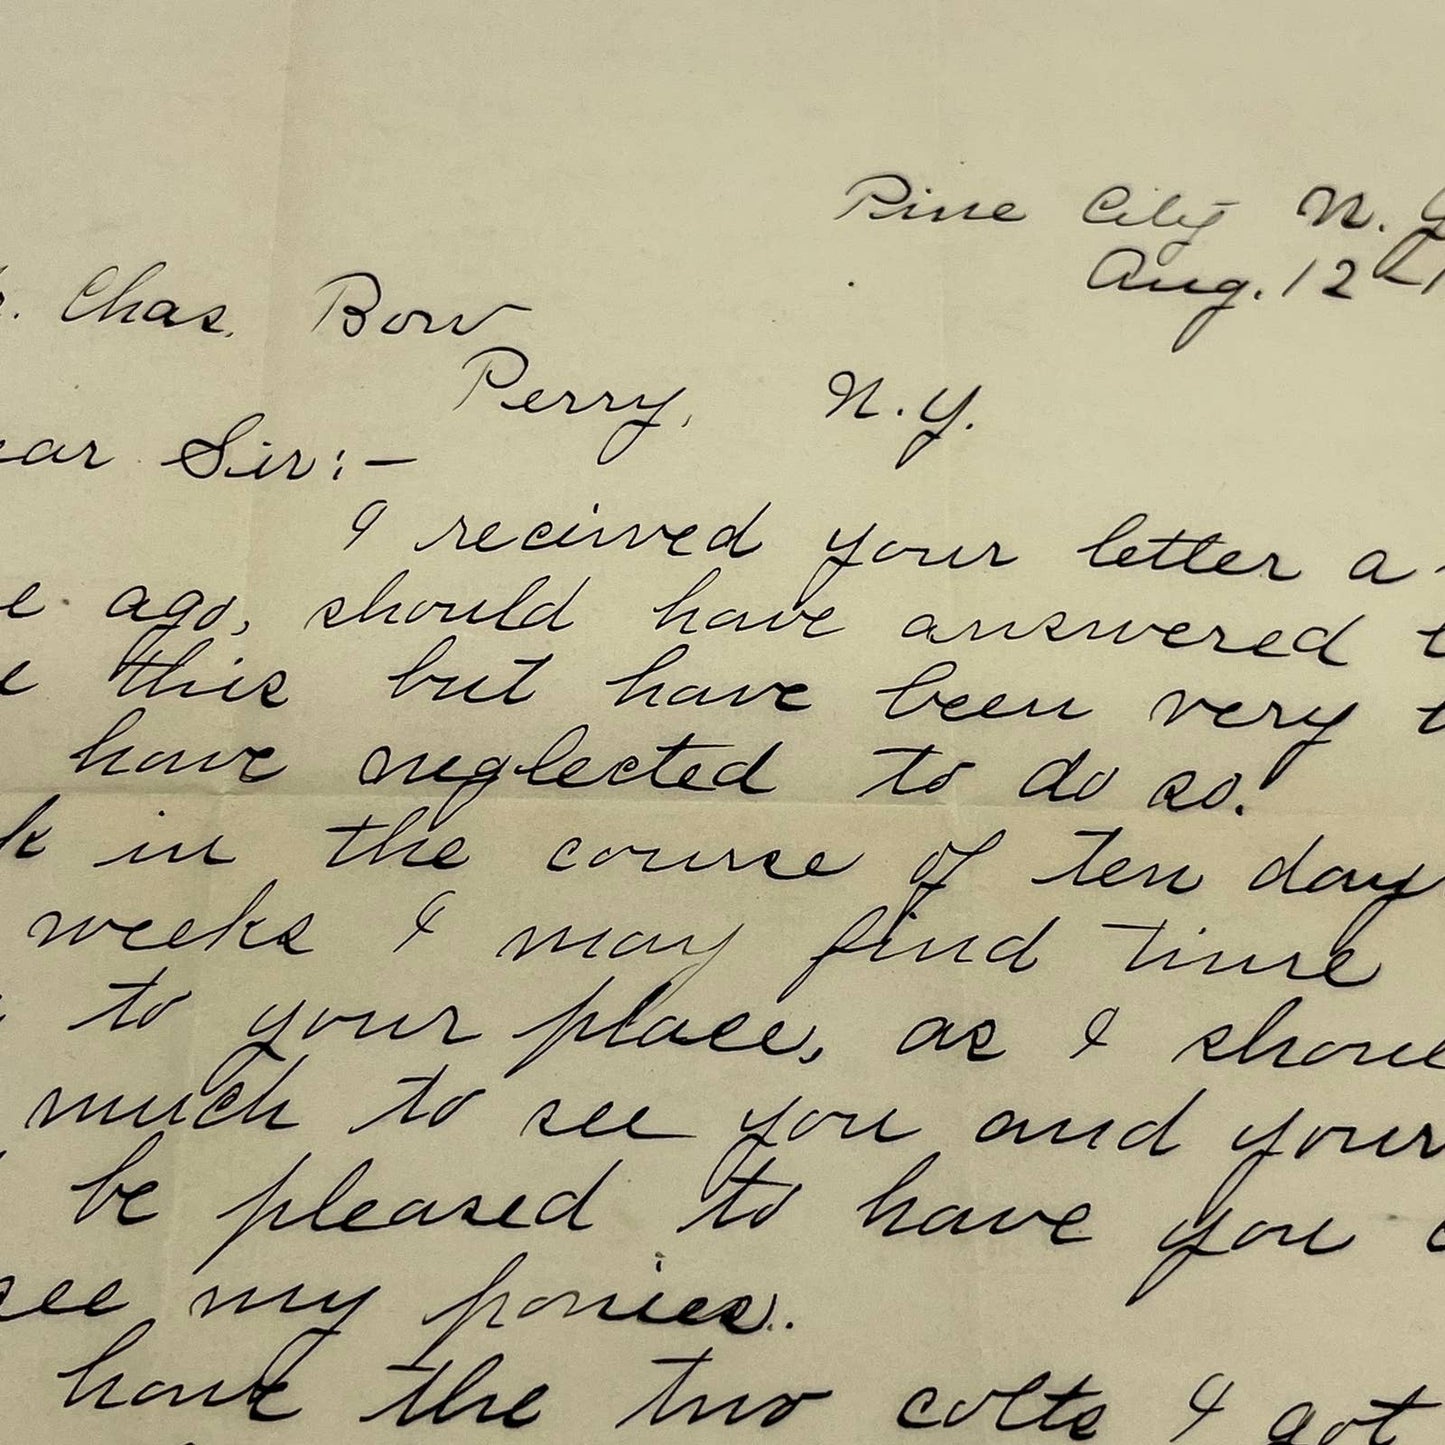 Pine City N. Y
Aug. 12
. Chas. Bow
Perry, N. Y.
ear Sir:-
I recieved your letter a
e ago, should have answered
e this but have been very
have neglected to do so.
k in the course of ten day
weeks I may find time
to your place, as I shoul
much to see you and your
be pleased to have you
see my ponies.
have the two colts I got